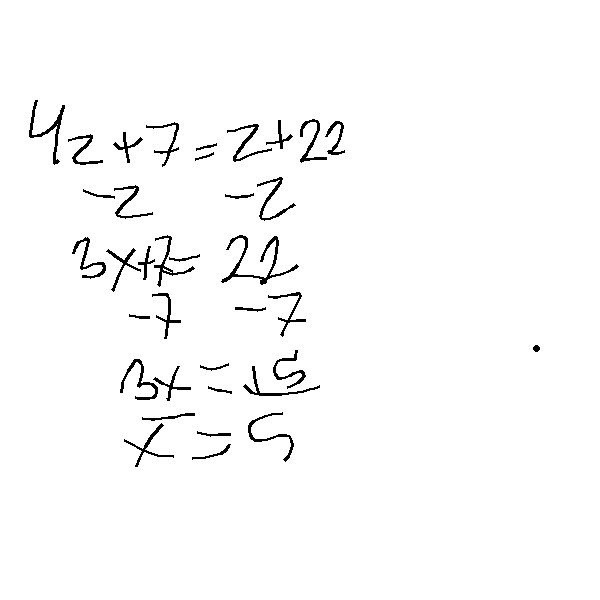 4z+7=z+22
-z -z
3x+7=22
-7 -7
3x=15
x=5